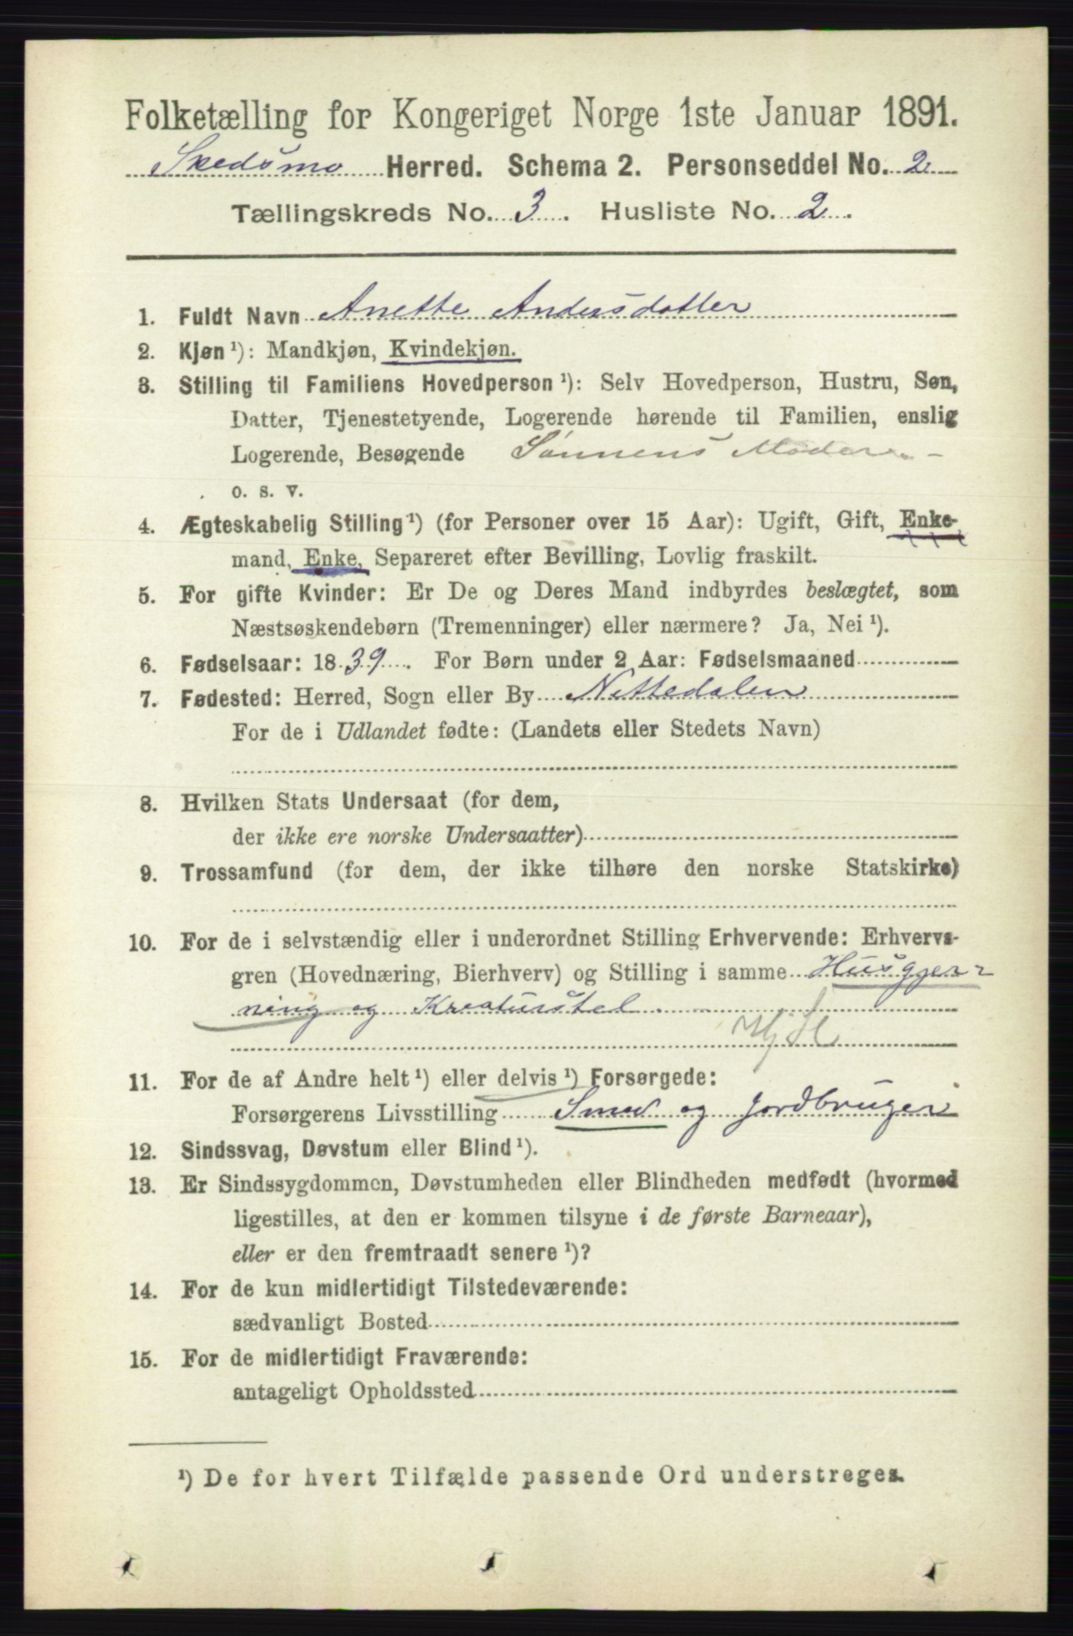 Folketælling for Kongeriget Norge 1ste Januar 1891.
Skedsmo Herred. Schema 2. Personseddel No. 2
Tællingskreds No. 3. Husliste No. 2.
1. Fuldt Navn Anette Andersdatter
2. Kjøn ¹): Mandkjøn, Kvindekjøn.
3. Stilling til Familiens Hovedperson ¹): Selv Hovedperson, Hustru, Søn,
Datter, Tjenestetyende, Logerende hørende til Familien, enslig
Logerende, Besøgende Sønnens Moder
o. s. v.
4. Ægteskabelig Stilling ¹) (for Personer over 15 Aar): Ugift, Gift, Enke-
mand, Enke, Separeret efter Bevilling, Lovlig fraskilt.
5. For gifte Kvinder: Er De og Deres Mand indbyrdes beslægtet, som
Næstsøskendebørn (Tremenninger) eller nærmere? Ja, Nei ¹).
6. Fødselsaar: 1839. For Børn under 2 Aar: Fødselsmaaned
7. Fødested: Herred, Sogn eller By Nittedalen
For de i Udlandet fødte: (Landets eller Stedets Navn)
8. Hvilken Stats Undersaat (for dem,
der ikke ere norske Undersaatter)
9. Trossamfund (for dem, der ikke tilhøre den norske Statskirke)
10. For de i selvstændig eller i underordnet Stilling Erhvervende: Erhvervs-
gren (Hovednæring, Bierhverv) og Stilling i samme Husgjer-
ning og Kreaturstel.
11. For de af Andre helt ¹) eller delvis ¹) Forsørgede:
Forsørgerens Livsstilling Smed og Jordbruger
12. Sindssvag, Døvstum eller Blind ¹).
13. Er Sindssygdommen, Døvstumheden eller Blindheden medfødt (hvormed
ligestilles, at den er kommen tilsyne i de første Barneaar),
eller er den fremtraadt senere ¹)?
14. For de kun midlertidigt Tilstedeværende:
sædvanligt Bosted
15. For de midlertidigt Fraværende:
antageligt Opholdssted
¹) De for hvert Tilfælde passende Ord understreges.